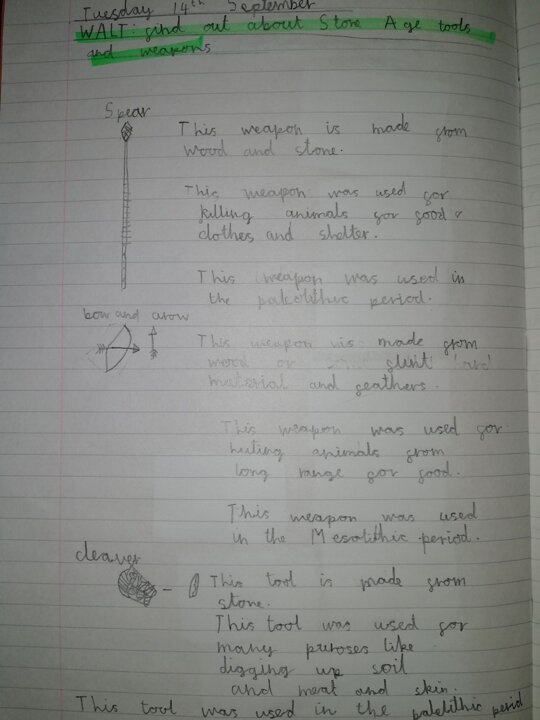 Tuesday 14th September
WALT: find out about Stone Age tools
and weapons
Spear
This weapon is made from
wood and stone.
This weapon was used for
killing animals for food &
clothes and shelter.
This weapon was used in
the paleolithic period.
bow and arow
This weapon is made from
wood or flint hard
material and feathers.
This weapon was used for
huting animals from
long range for food.
This weapon was used
in the Mesolithic period.
cleaver
This tool is made from
stone.
This tool was used for
many puroses like
digging up soil
and meat and skin.
This tool was used in the palelithic perid